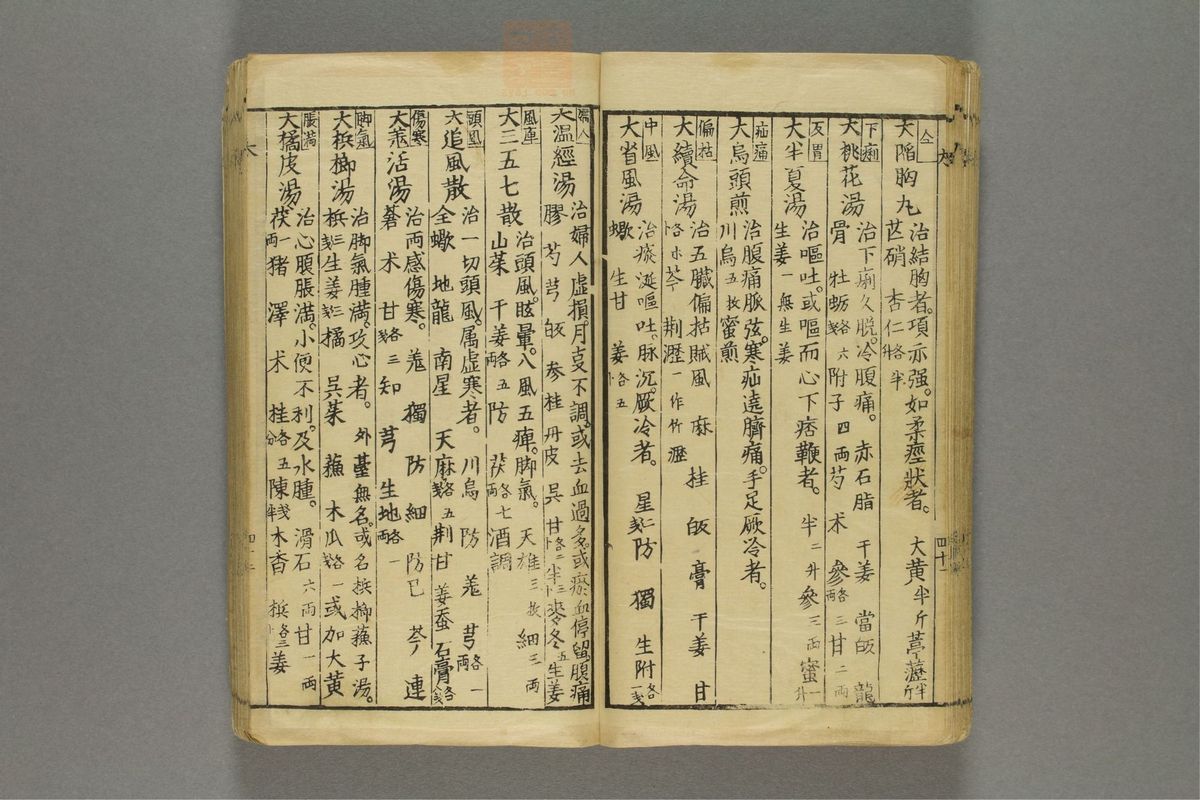 仝
大陷胸丸 治結胸者。項亦强。如柔痙狀者。 大黃半斤葶藶半升
芒硝 杏仁各半升
下痢
大桃花湯 治下痢久脱。冷腹痛。 赤石脂 干姜 當皈 龍
骨 牡蛎各六戔附子四両芍 术 參各三両甘二両
反胃
大半夏湯 治嘔吐。或嘔而心下痞鞕者。 半二升參三両蜜一升
生姜一無生姜
疝痛
大烏頭煎 治腹痛脈弦。寒疝遶臍痛。手足厥冷者。
川烏五枚蜜煎
偏枯
大續命湯 治五臓偏拈賊風 麻 桂 皈 膏 干姜 甘
芎 荆瀝一作竹瀝
中風
大省風湯 治痰涎嘔吐。脉沉。厥冷者。 星 防 獨 生附各一戔
蠍 生甘 姜
四十一
婦人
大溫經湯 治婦人虚損。月叓不調。或去血過多。或瘀血停留。腹痛
膠 芍 芎 皈 參 桂 丹皮 吳 甘 半 麥冬五生姜
風痺
大三五七散 治頭風。眩暈。八風五痺。脚氣。 天雄三枚細三両
山茱 干姜各五両防 茯各七両酒調
頭風
大追風散 治一切頭風。属虚寒者。 川烏 防 羗 芎各一両
全蠍 地龍 南星 天麻各五戔荆 甘 姜蚕 石膏各八戔
傷寒
大羗活湯 治両感傷寒。 羗 獨 防 細 防己 芩 連
蒼 术 甘各三戔知 芎 生地各一両
脚氣
大梹榔湯 治脚氣腫満。攻心者。 外䑓無名。或名梹榔蘓子湯。
梹三戔生姜三戔橘 吳茱 蘓 木瓜各一戔或加大黃
脹満
大橘皮湯 治心腹脹満。小便不利。及水腫。 滑石六両甘一両
茯一両猪 澤 术 桂各五分陳戔半木香 梹各三卜姜